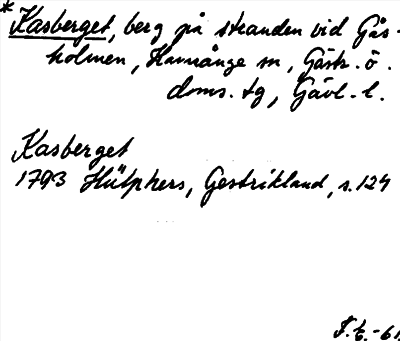 *Kasberget, berg på stranden vid Gås-
holmen, Hamrånge sn, Gästr. ö.
doms. tg, Gävl. l.
Kasberget
1793 Hülphers, Gestrikland, s. 124